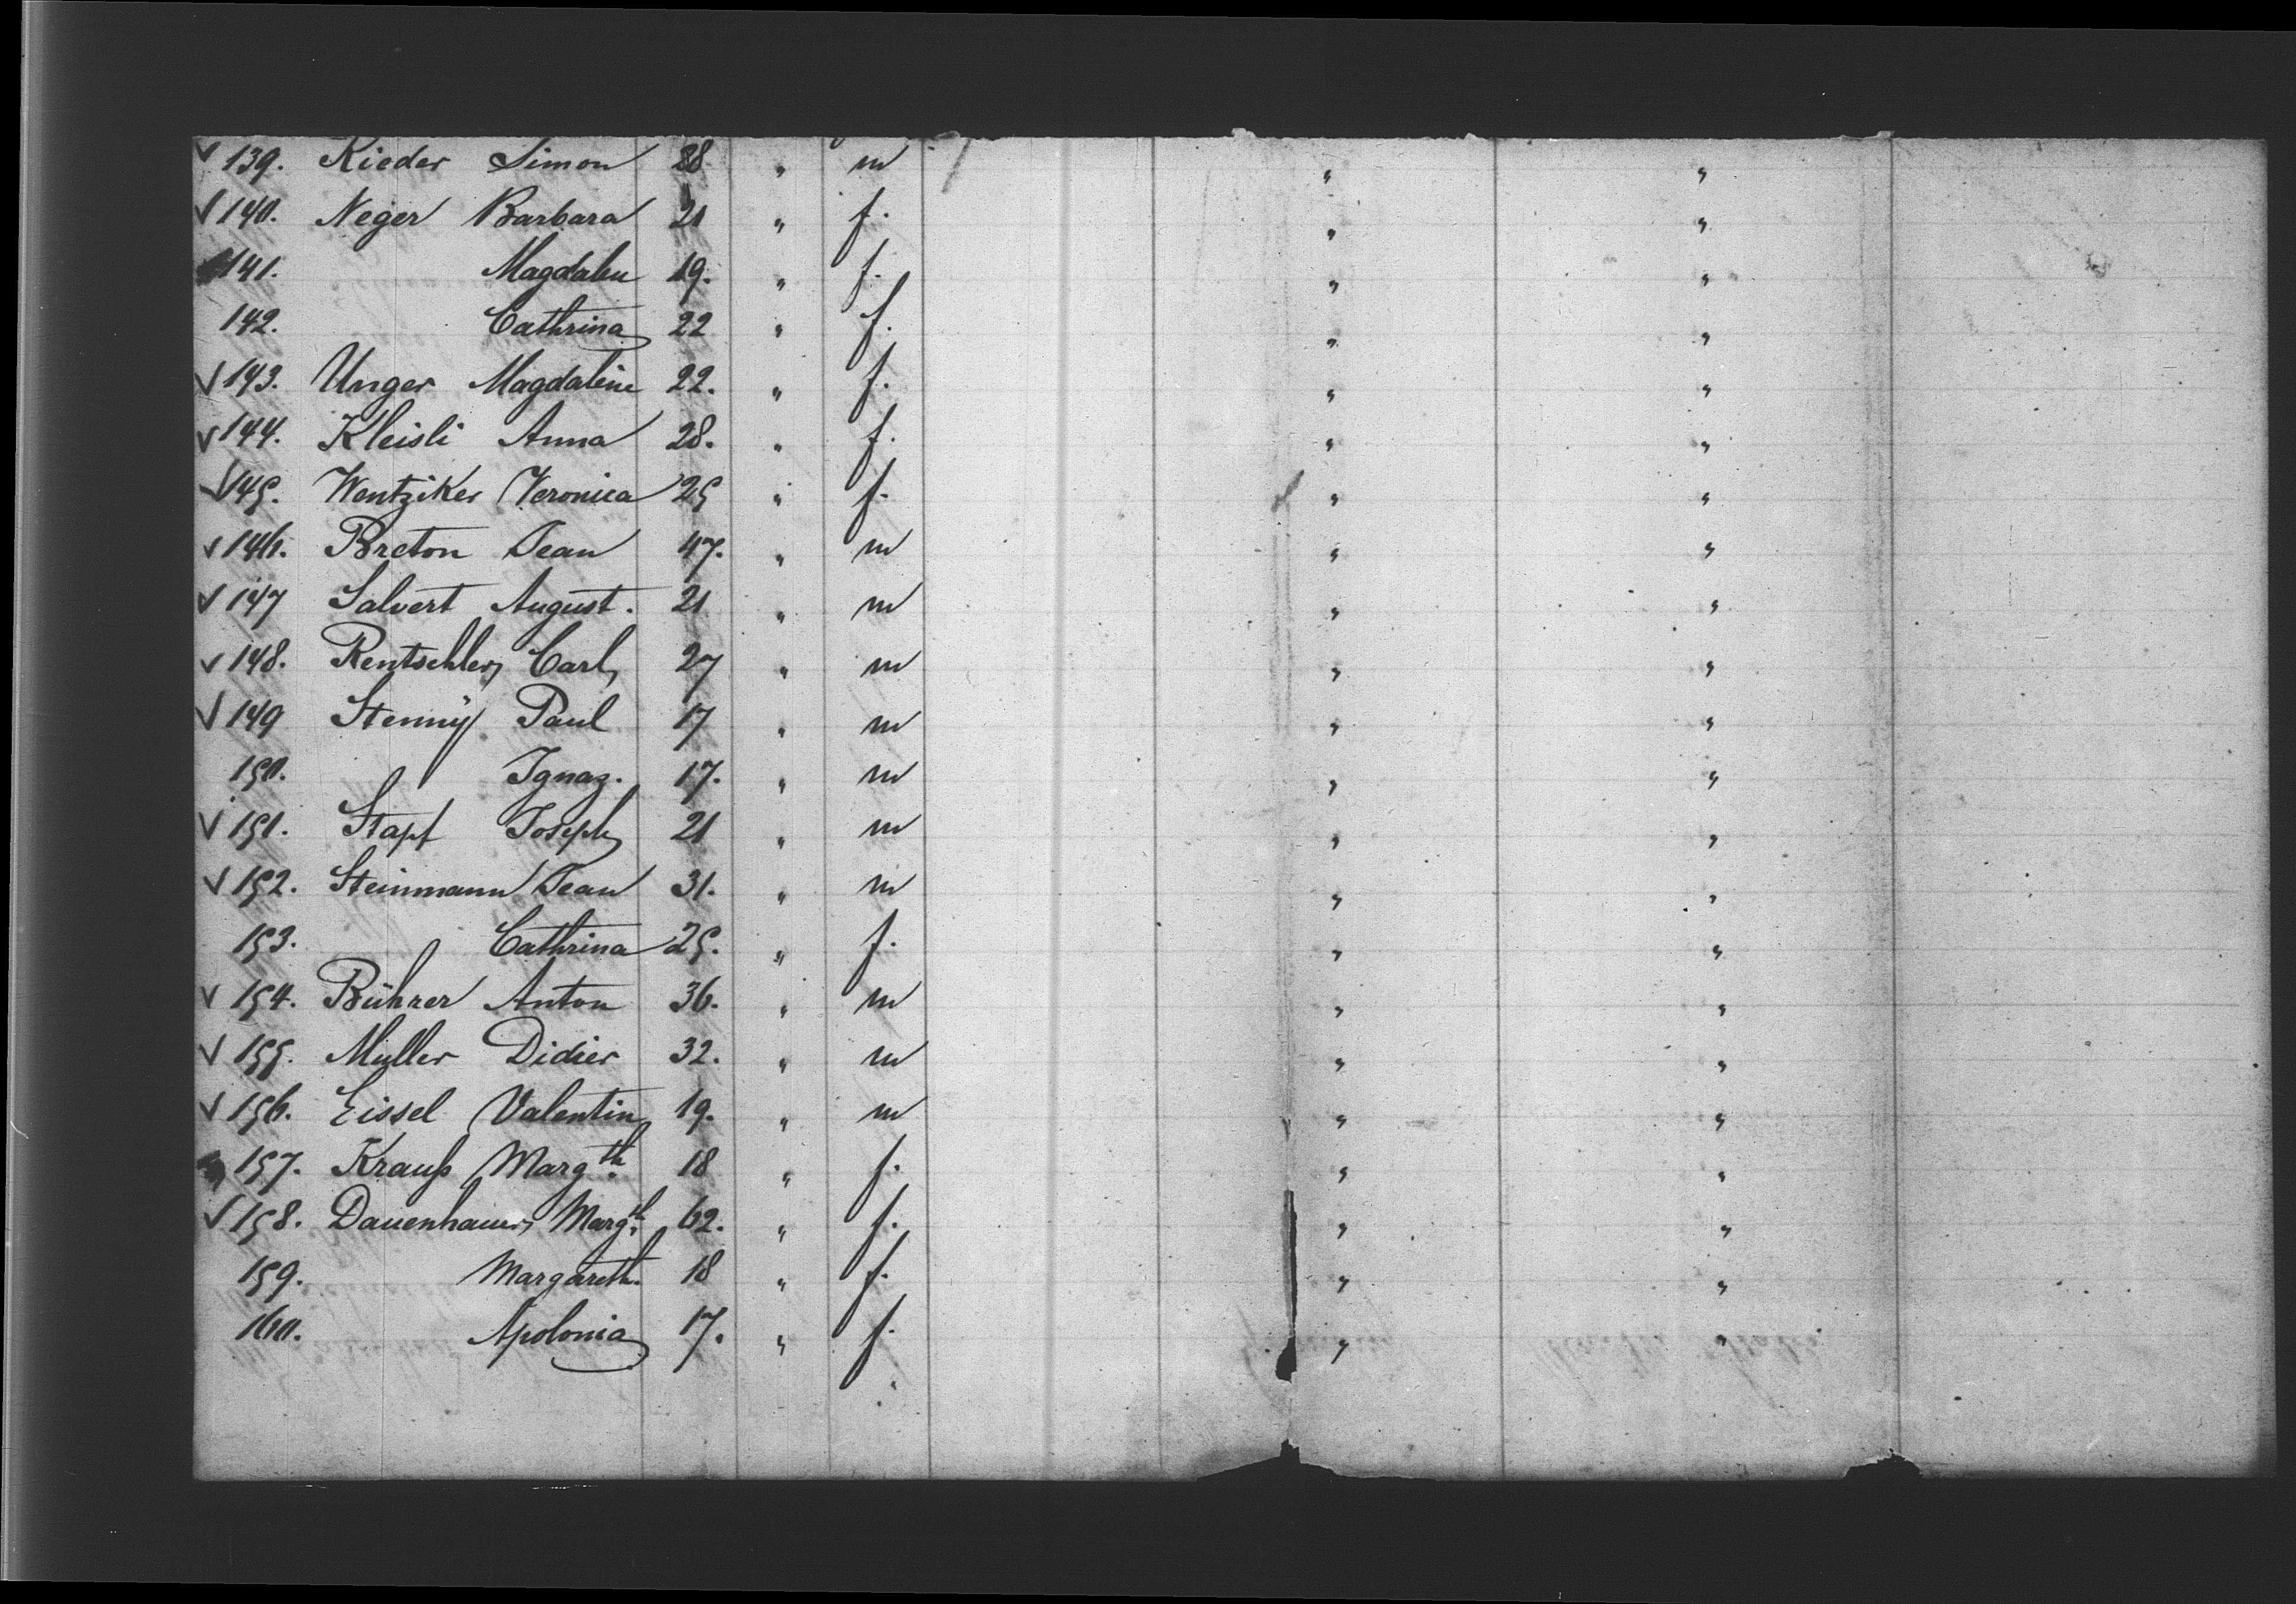 ✓ 139. Rieder Simon 28 " m " "
✓ 140. Neger Barbara 21 " f. " "
141. Magdalen 19. " f. " "
142. Cathrina 22 " f. " "
✓ 143. Unger Magdalene 22. " f. " "
✓ 144. Kleisli Anna 28. " f. " "
✓ 145. Wentziker Veronica 25 " f. " "
✓ 146. Breton Jean 47. " m " "
✓ 147 Salvert August. 21 " m " "
✓ 148. Rentschler, Carl, 27 " m " "
✓ 149 Stenny Paul 17 " m " "
150. Ignaz. 17. " m " "
✓ 151. Stapf Joseph 21 " m " "
✓ 152. Steinmann Jean 31. " m " "
153. Cathrina 25. " f. " "
✓ 154. Bührer Anton 36. " m " "
✓ 155. Muller Didier 32. " m " "
✓ 156. Eissel Valentin 19. " m " "
157. Krauß Margth. 18 " f. " "
✓ 158. Dauenhauer, Margth. 62. " f. " "
159. Margareth. 18 " f. " "
160. Apolonia 17. " f. " "